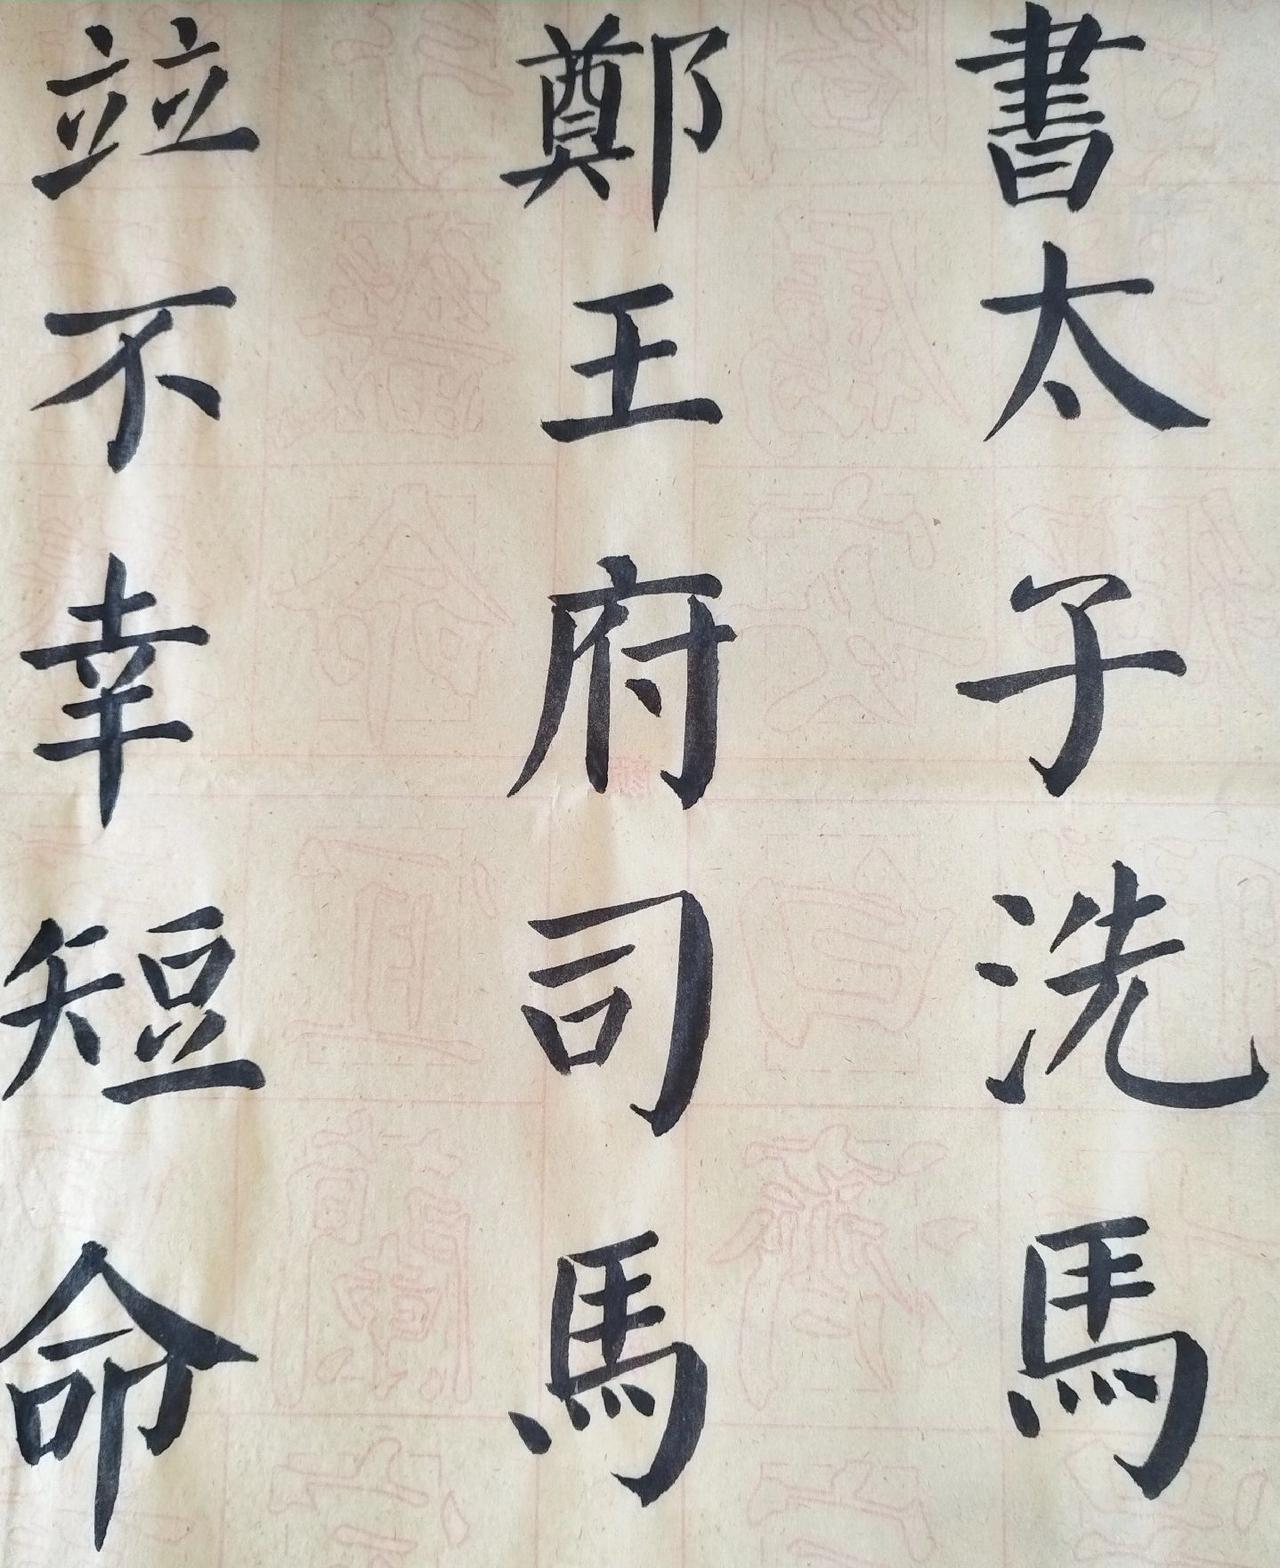 書太子洗馬
鄭王府司馬
竝不幸短命